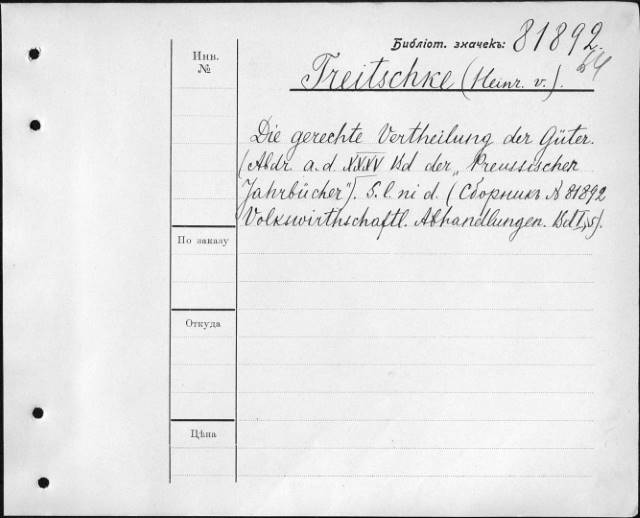 Библіот. значекъ: 81892
Инв.
№
Treitschke (Heinr. v.).
Die gerechte Vertheilung der Güter.
(Abdr. a. d. XXXV Bd der „Preussischer
Jahrbücher"). S. l. ni d. (Сборникъ № 81892
Volkswirthschaftl. Abhandlungen. Bd I, 5).
По заказу
Откуда
Цѣна